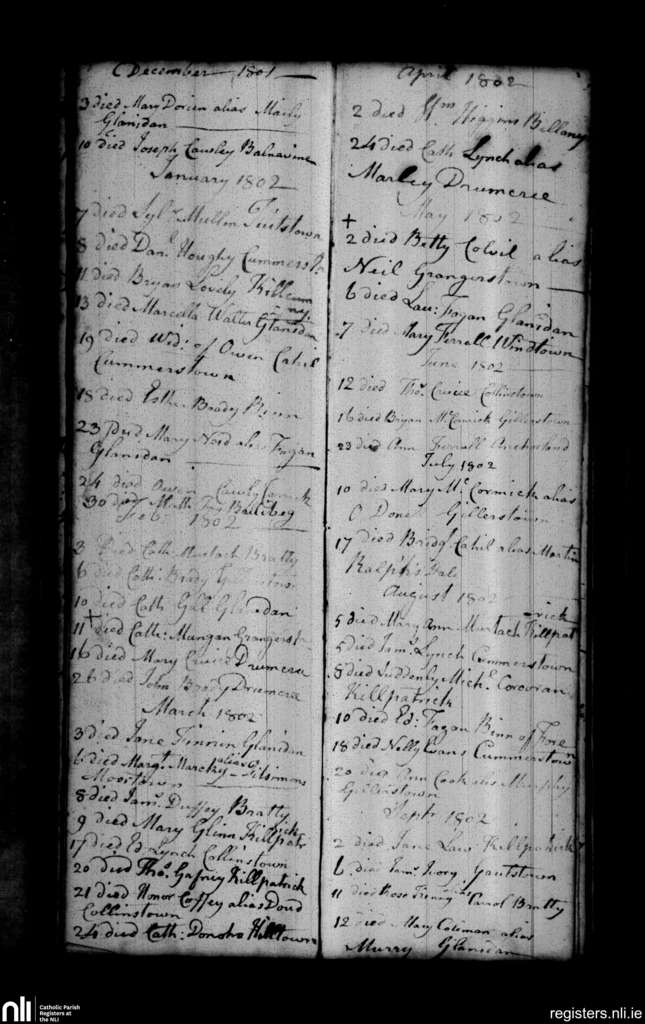 December 1801
3 died Mary Dorien alias Maily
Glanidan
10 died Joseph Cawley Balnavine
January 1802
7 died Syl.r Mullin Tuitstown
8 died Dan.l Houghy Cummerst
11 died Bryan Lovely Killcum
ny.
13 died Marcella Walter Glanidan
19 died Wid: of Owen Cahil
Cummerstown
18 died Esther Brady Binn
23 Died Mary Neid alias Fagan
Glanidan
24 died Owen Cawly
30 died Matt: Fay Ballibeg
Feb 1802
3 Died Cath Murtach Bratty
6 died Cath: Brady
10 died Cath Glanidan
11 died Cath: Mungan Grangerst
16 died Mary Cruice Drumcree
26 died John Brady Drumcree
March 1802
3 died Jane Finnien Glanidan
6 died Marg.t Marcky alias Fitsimons
Moortown
8 died Jam.s Duffey Bratty
9 died Mary Glinn Killpat
rick
17 died Ed Lynch Collinstown
20 died Tho.s Gafney Killpatrick
21 died Honor Coffey alias Doud
Collinstown
24 died Cath: Donoho Hilltown
April 1802
2 died Wm Higgins Billaney
24 died Cath Lynch alias
Marley Drumcree
May 1802
2 died Betty Colvil alias
Neil Grangerstown
6 died Lau: Fagan Glanidan
7 died Mary Ferrall Windtown
June 1802
12 died Tho.s Cruice Collinstown
16 died Bryan McCormick Gillerstown
23 died Ann
July 1802
10 died Mary McCormick alias
O Donel Gillerstown
17 died Bridg.t Cahil alias Martin
Ralph's dale
August 1802
5 died Mary Ann Murtach Killpat
rick
5 died Jam.s Lynch Cummerstown
8 died Suddenly Mich.l Corcoran
Killpatrick
10 died Ed: Fagan Binn of Fore
18 died Nelly Evans Cummerstown
20 died Ann Cook alias Murphy
Gillerstown
Sept.r 1802
2 died Jane Law Killpatrick
6 died Jam.s Ivory Gautstown
11 died Rose alias Carrol Bratty
12 died Mary Coleman alias
Murry Glanidan
nli
Catholic Parish
Registers at
the NLI
registers.nli.ie